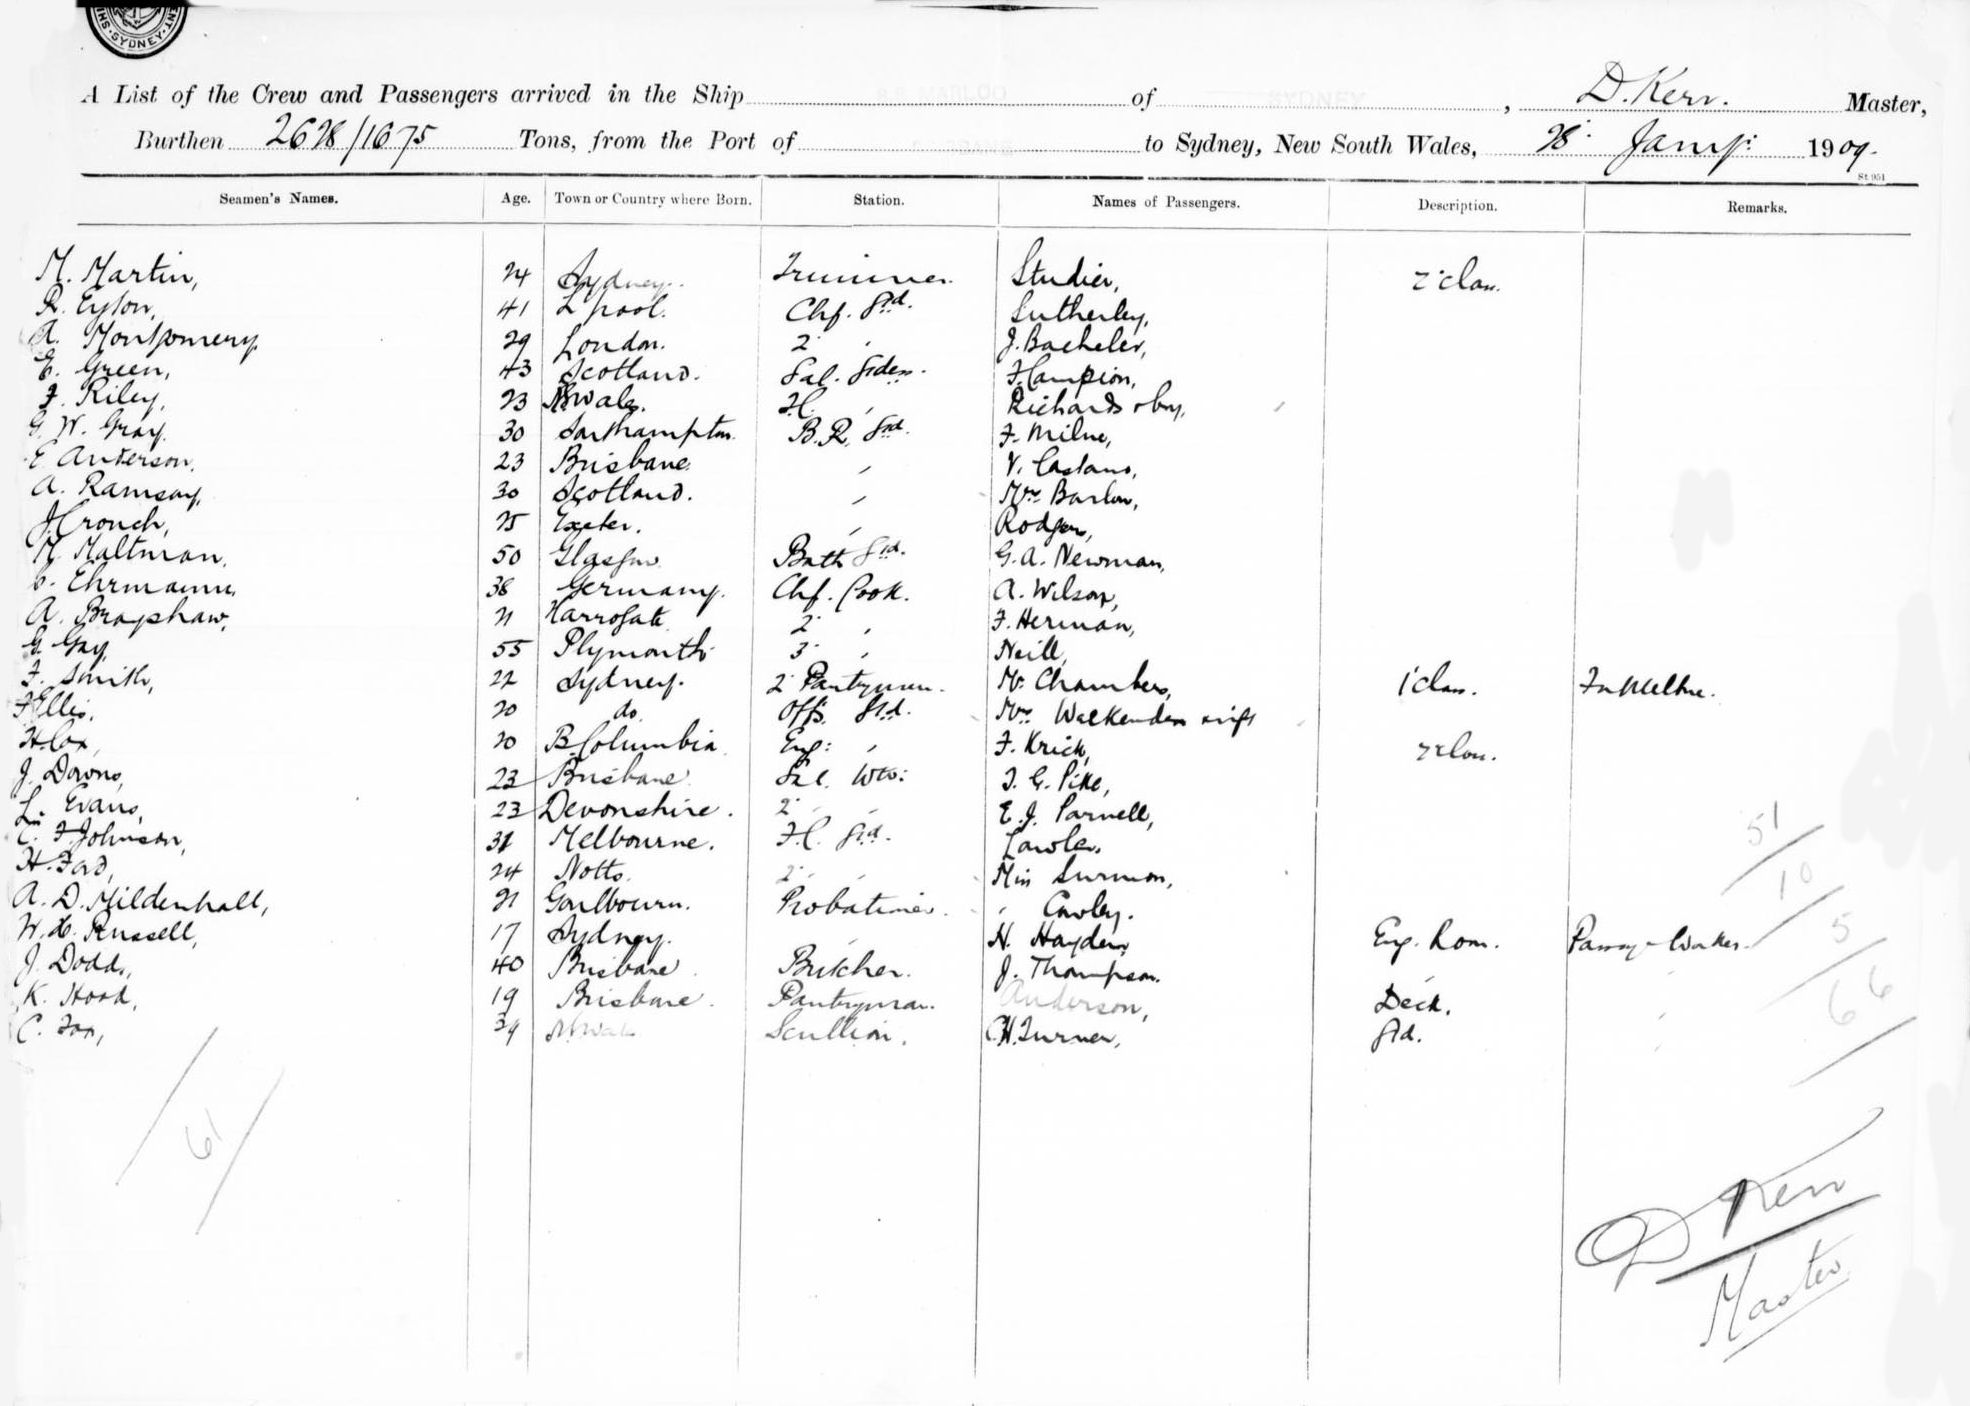 SYDNEY
A List of the Crew and Passengers arrived in the Ship S.S. MARLOO of SYDNEY, D. Kerr. Master,
Burthen 2628/1675 Tons, from the Port of to Sydney, New South Wales, 28 Jany: 1909.
St 951
Seamen's Names. Age. Town or Country where Born. Station. Names of Passengers. Description. Remarks.
M. Martin, 24 Sydney. Trimmer. Studier, 2 clas.
R. Eyton, 41 L'pool. Chf. Std. Sutherley,
A. Montgomery 29 London. 2 " J. Bacheler,
E. Green, 43 Scotland. Sal. Stdess. Hampion,
F. Riley, 23 NSWales. F.C. " Richards & boy,
G. W. Gray. 30 Southampton. B.R. Std. F. Milne,
E Anderson. 23 Brisbane. " V. Castano,
A. Ramsay, 30 Scotland. " Mrs Barlow,
J. Crouch, 25 Exeter. " Rodgers,
M. Maltman. 50 Glasgow Bath Std. G. A. Newman,
C. Ehrmann, 38 Germany. Chf. Cook. A. Wilson,
A. Bragshaw, 21 Harrogate 2 " F. Herman,
G. Gay, 55 Plymouth 3 " Neill,
F. Smith, 22 Sydney. 2 Pantryman. Mr Chambers, 1 clas. Fm Melbne.
F Ellis. 20 do. Offs. Std. Mrs Walkenden & inft
H. Cox, 20 B. Columbia Eng: " F. Krick, 2 clas.
J. Downs, 23 Brisbane Sal. Wtr: T. G. Pike,
L. Evans, 23 Devonshire. 2 " E. J. Parnell,
C. F. Johnson, 31 Melbourne. F.C. Std. Lawler,
H. Ford, 24 Notts. 2 " Miss Surmon,
A. D. Mildenhall, 21 Goulbourn. Probationer. " Cawley.
W. H. Russell, 17 Sydney. " H. Hayden, Eng. Room. Passage Worker.
J. Dodds, 40 Brisbane Butcher. J. Thompson. "
K. Hood, 19 Brisbane. Pantryman. Anderson, Deck. "
C. Fox, 39 NSWales Scullion. C.H. Turner, Std. "
51
10
5
66
61
D Kerr
Master